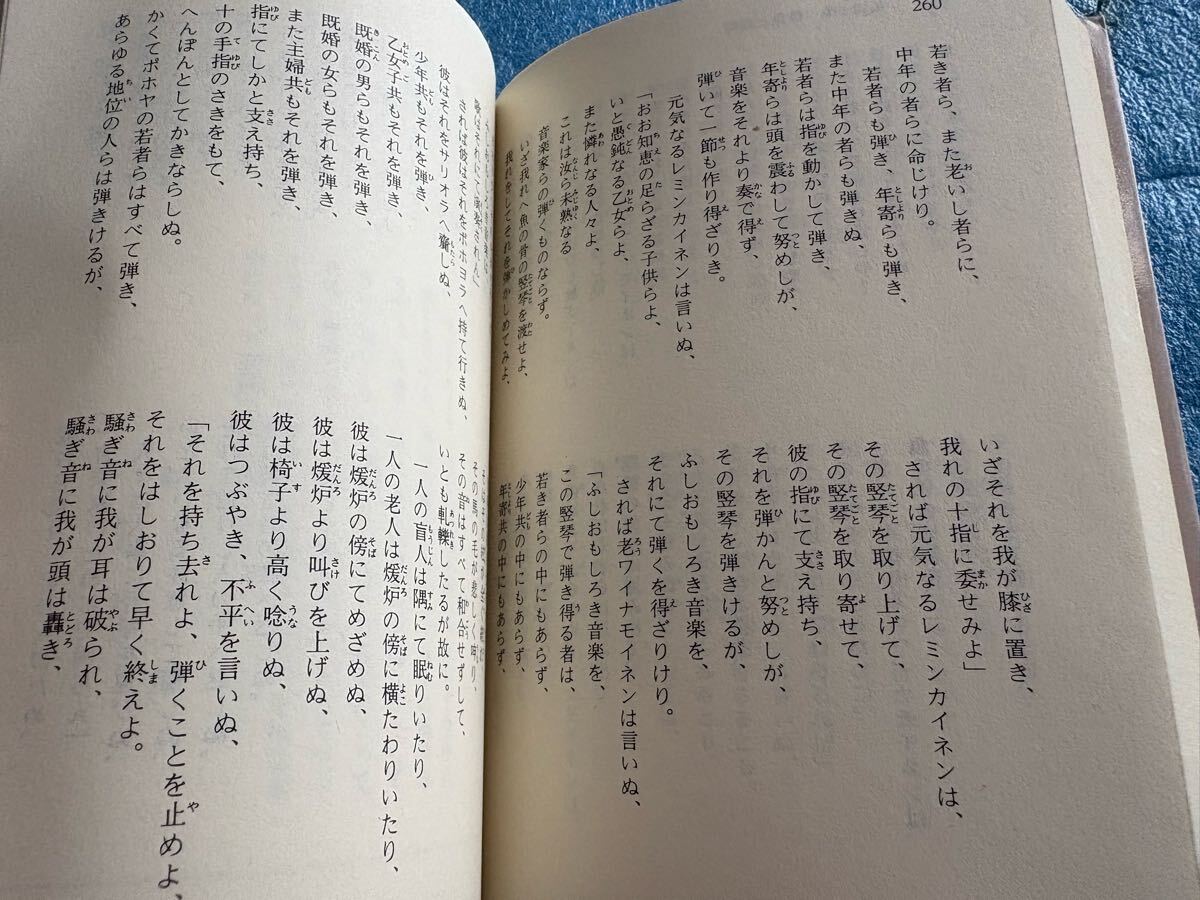 260
若き者ら、また老いし者らに、
中年の者らに命じけり。
若者らも弾き、年寄らも弾き、
また中年の者らも弾きぬ、
若者らは指を動かして弾き、
年寄らは頭を震わして努めしが、
音楽をそれより奏で得ず、
弾いて一節も作り得ざりき。
元気なるレミンカイネンは言いぬ、
「おお知恵の足らざる子供らよ、
いと愚鈍なる乙女らよ、
また憐れなる人々よ、
これは汝ら未熟なる
音楽家らの弾くものならず。
いざ我れへ魚の骨の竪琴を渡せよ、
我れをしてそれを弾かしめてみよ、
いざそれを我が膝に置き、
我れの十指に委せみよ」
されば元気なるレミンカイネンは、
その竪琴を取り上げて、
その竪琴を取り寄せて、
彼の指にて支え持ち、
それを弾かんと努めしが、
その竪琴を弾きけるが、
ふしおもしろき音楽を、
それにて弾くを得ざりけり。
されば老ワイナモイネンは言いぬ、
「ふしおもしろき音楽を、
この竪琴で弾き得る者は、
若き者らの中にもあらず、
少年共の中にもあらず、
年寄共の中にもあらず、
されば彼はそれをポホヨラへ持て行きぬ、
彼はそれをサリオラへ齎しぬ、
少年共もそれを弾き、
乙女子共もそれを弾き、
既婚の男らもそれを弾き、
既婚の女らもそれを弾き、
また主婦共もそれを弾き、
指にてしかと支え持ち、
十の手指のさきをもて、
へんぽんとしてかきならしぬ。
かくてポホヤの若者らはすべて弾き、
あらゆる地位の人らは弾きけるが、
その馬の毛が悲しく呻り、
その音はすべて和合せずして、
いとも軋轢したるが故に。
一人の盲人は隅にて眠りいたり、
一人の老人は煖炉の傍に横たわりいたり、
彼は煖炉の傍にてめざめぬ、
彼は煖炉より叫びを上げぬ、
彼は椅子より高く唸りぬ、
彼はつぶやき、不平を言いぬ、
「それを持ち去れよ、弾くことを止めよ、
それをはしおりて早く終えよ。
騒ぎ音に我が耳は破られ、
騒ぎ音に我が頭は轟き、